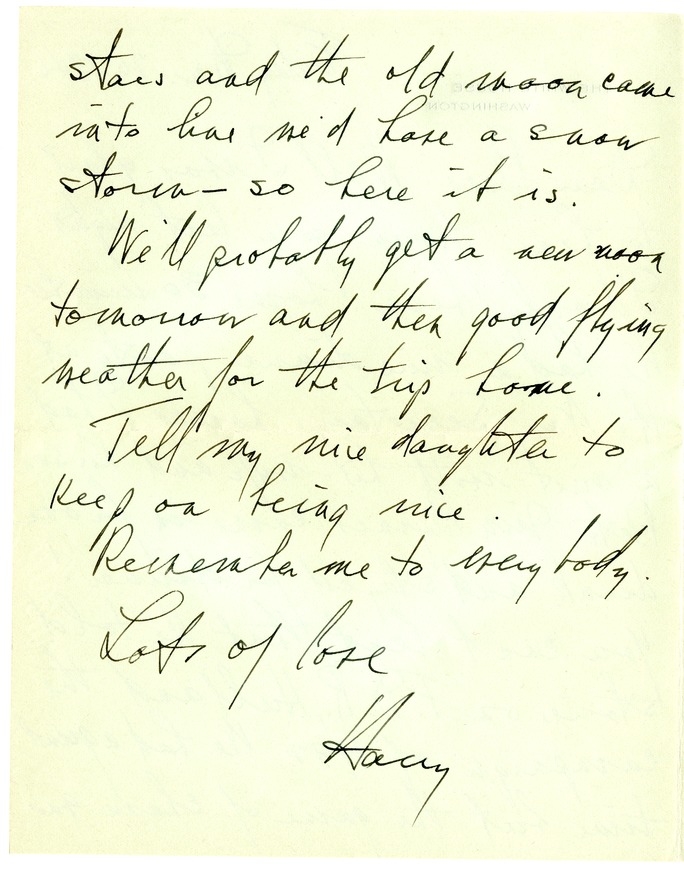 stars and the old moon came
into line we'd have a snow
storm - so here it is.
We'll probably get a new moon
tomorrow and then good flying
weather for the trip home.
Tell my nice daughter to
keep on being nice.
Remember me to everybody.
Lots of love
Harry